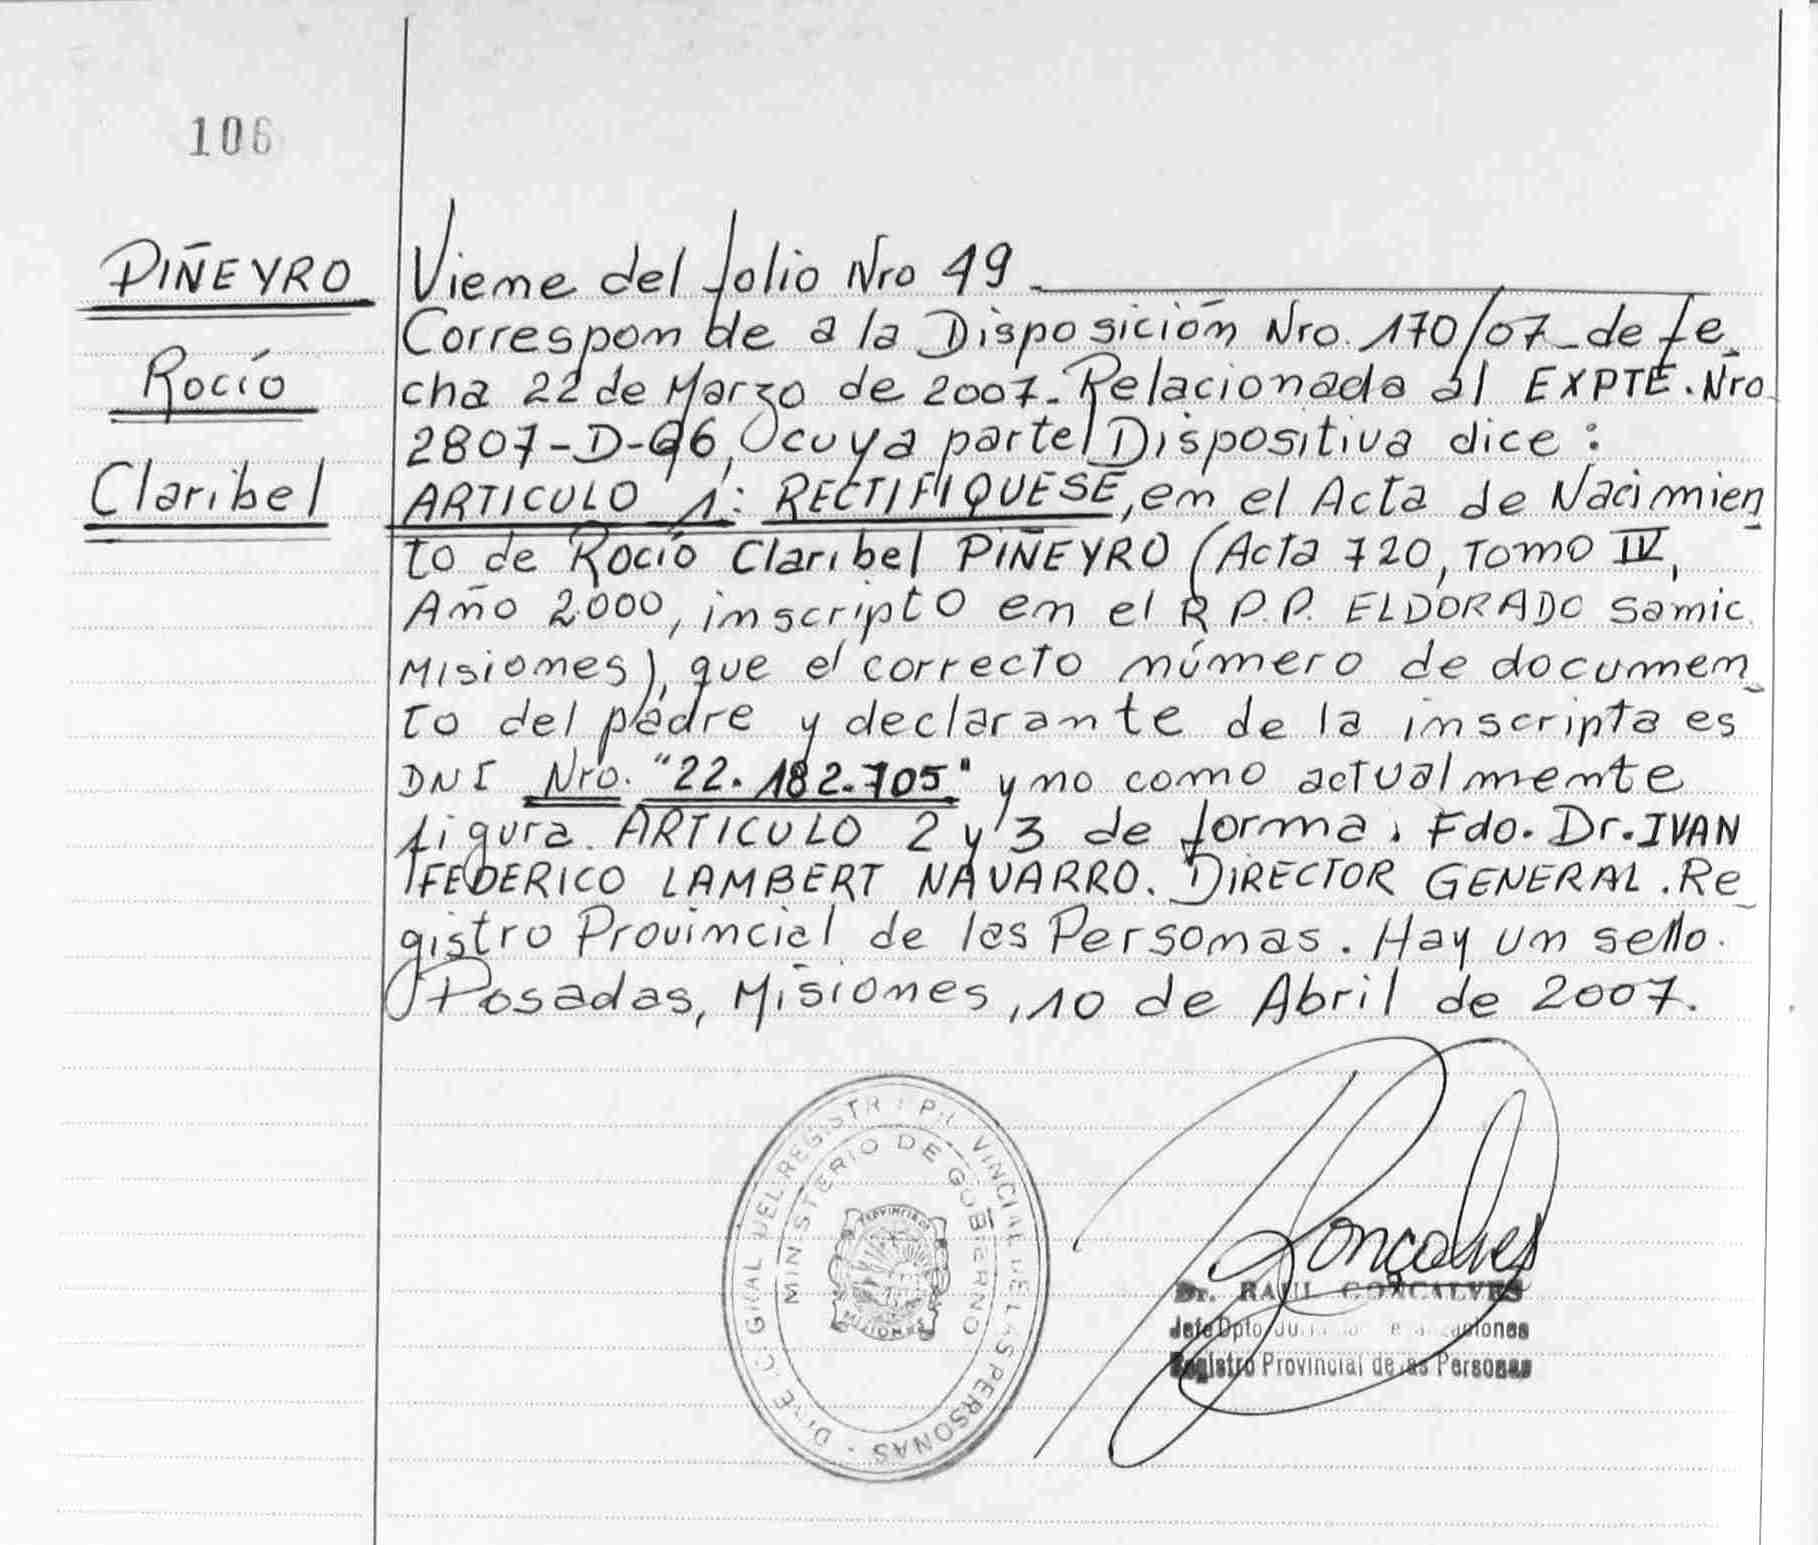 106
PIÑEYRO
Rocío
Claribel
Viene del folio Nro 49
Corresponde a la Disposición Nro. 170/07_de fe_
cha 22 de Marzo de 2007_Relacionada al EXPTE. Nro
2807-D-06, cuya parte Dispositiva dice:
ARTICULO 1: RECTIFIQUESE, en el Acta de Nacimien_
to de Rocío Claribel PIÑEYRO (Acta 720, Tomo IV,
Año 2.000, inscripto en el R.P.P. ELDORADO Samic.
Misiones), que el correcto número de documen_
to del padre y declarante de la inscripta es
DNI Nro. "22.182.705" y no como actualmente
figura. ARTICULO 2 y 3 de forma. Fdo. Dr. IVAN
FEDERICO LAMBERT NAVARRO. DIRECTOR GENERAL. Re_
gistro Provincial de las Personas. Hay un sello.
Posadas, Misiones, 10 de Abril de 2007.
GRAL DEL REGISTR PROVINCIAL DE LAS PERSONAS
MINISTERIO DE GOBIERNO
PROVINCIA DE
MISIONES
Goncalves
Dr. RAUL GONCALVES
Jefe Dpto.
Registro Provincial de las Personas